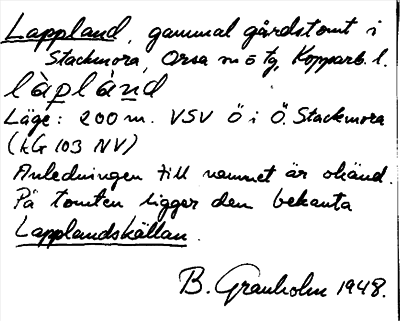 Lappland, gammal gårdstomt i
Stackmora, Orsa sn o tg, Kopparb. l.
làplànd
Läge: 200 m. VSV Ö i Ö. Stackmora
(LG 103 NV)
Anledningen till namnet är okänd.
På tomten ligger den bekanta
Lapplandskällan.
B. Granholm 1948.